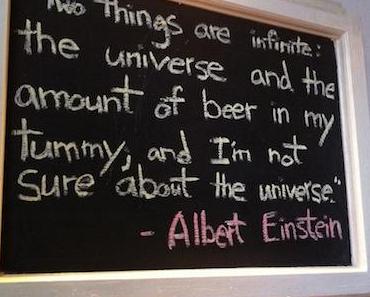 Two things are infinite:
the universe and the
amount of beer in my
tummy, and I'm not
sure about the universe."
- Albert Einstein